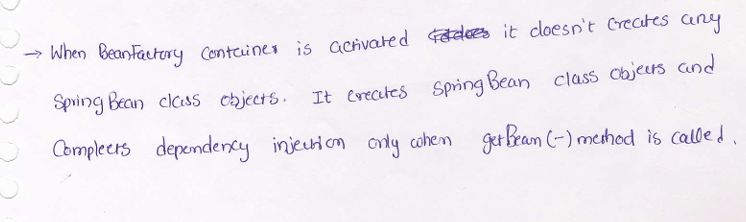 → When BeanFactory Container is activated it doesn't creates any
Spring Bean class objects. It creates Spring Bean class objects and
Completes dependency injection only when getBean(-) method is called.